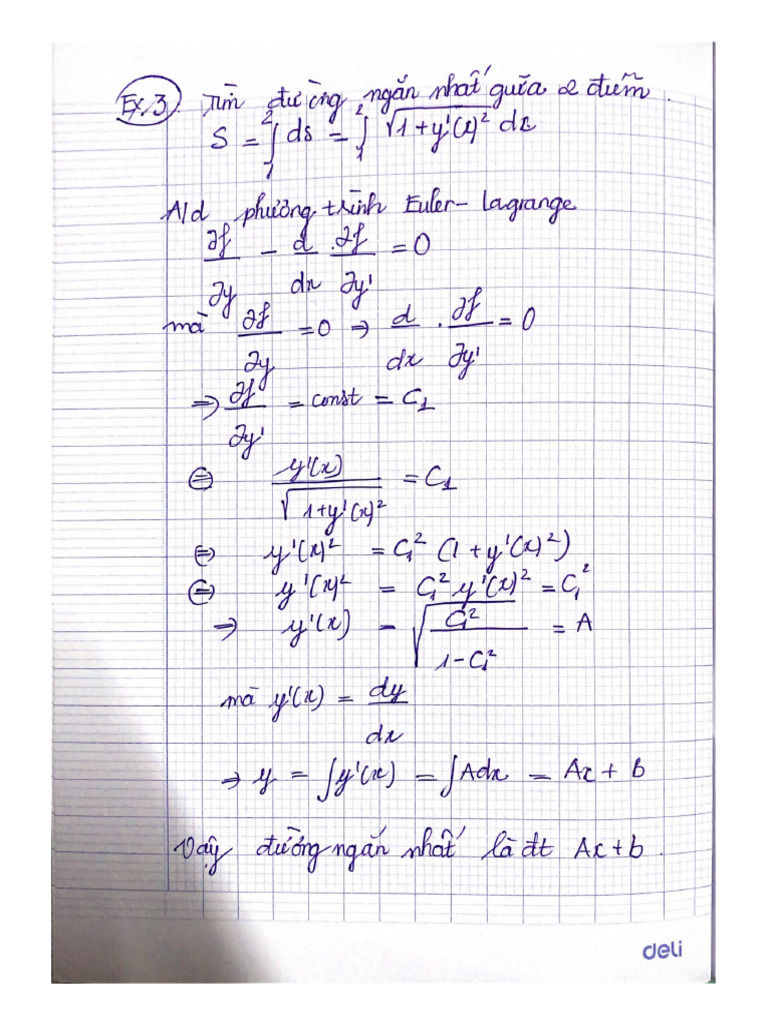 Ex.3. Tìm đường ngắn nhất giữa 2 điểm.
S = ∫₁² ds = ∫₁² √(1+y'(x)²) dx
A/d phương trình Euler-Lagrange
∂f/∂y - d/dx . ∂f/∂y' = 0
mà ∂f/∂y = 0 ⇒ d/dx . ∂f/∂y' = 0
⇒ ∂f/∂y' = const = C₁
⇔ y'(x)/√(1+y'(x)²) = C₁
⇔ y'(x)² = C₁² (1 + y'(x)²)
⇔ y'(x)² = C₁² y'(x)² = C₁²
⇒ y'(x) = √(C₁²/(1-C₁²)) = A
mà y'(x) = dy/dx
→ y = ∫y'(x) = ∫Adx = Ax + b
Vậy đường ngắn nhất là đt Ax+b.
deli